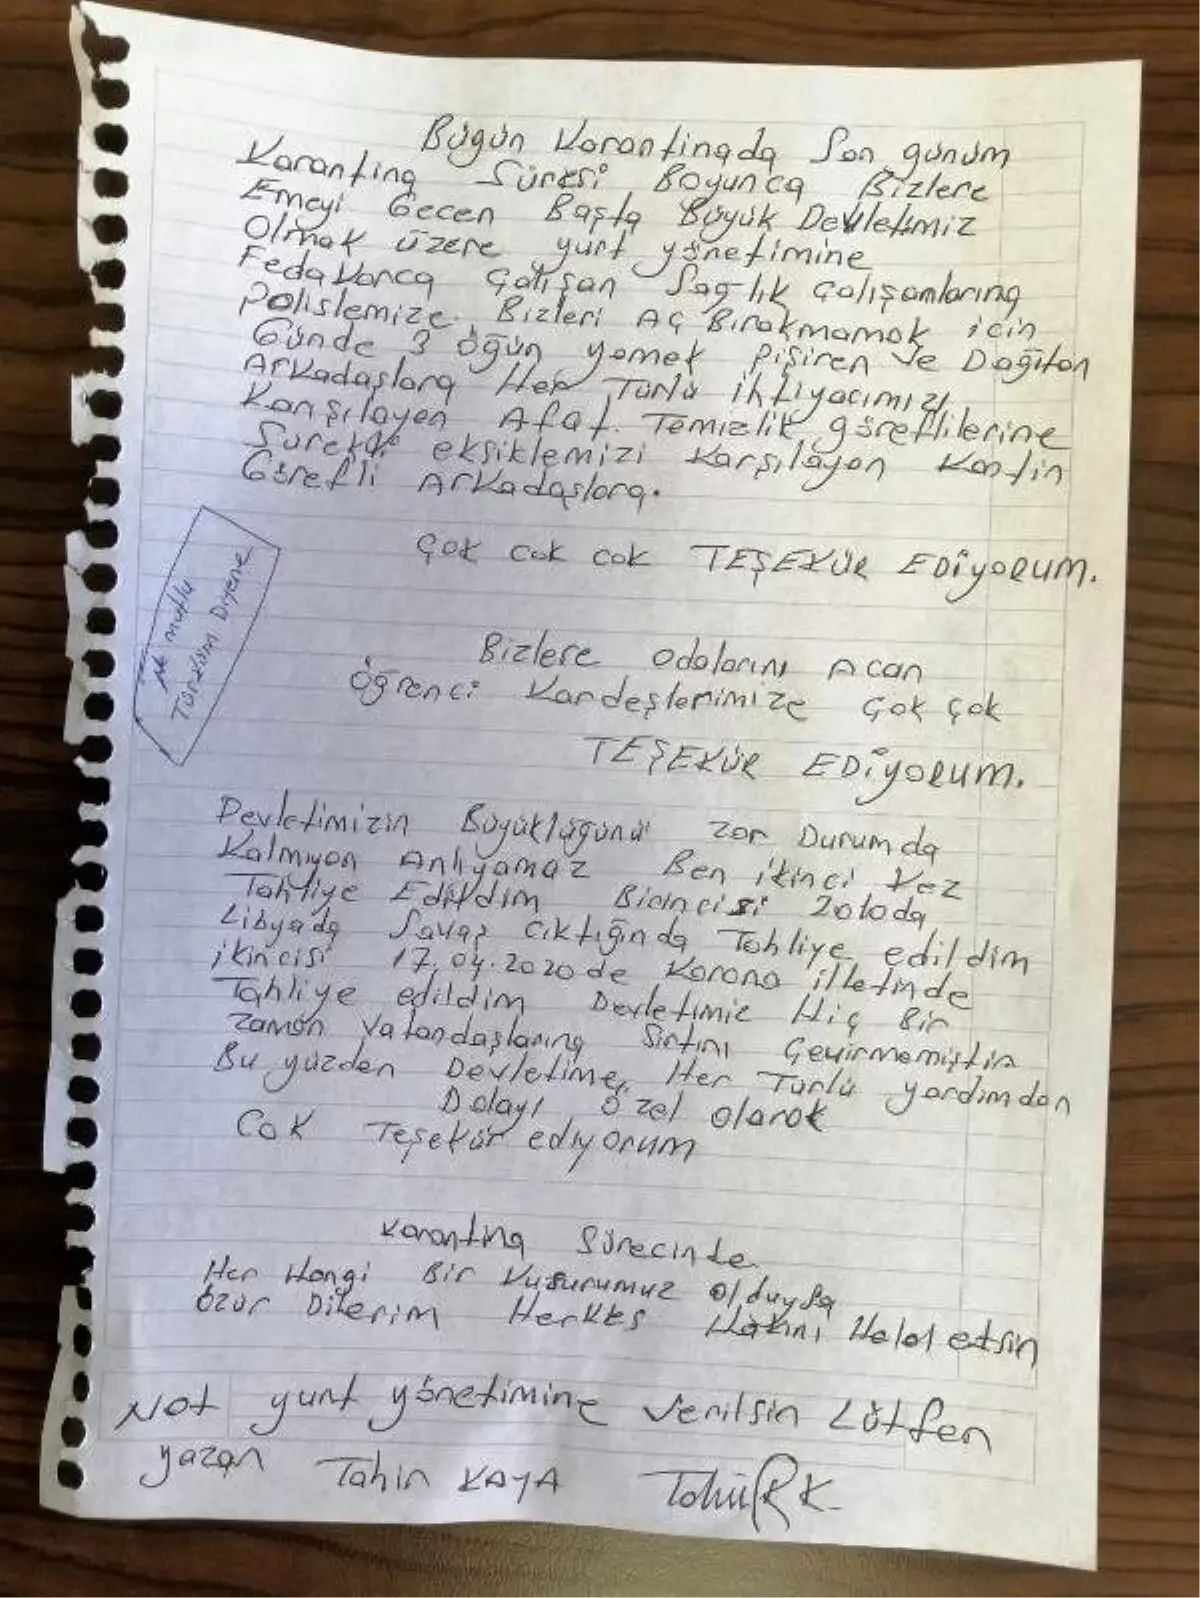 Bugün Karantinada Son günüm
Karantina Süresi Boyunca Bizlere
Emeyi Gecen Başta Büyük Devletimiz
Olmak üzere yurt yönetimine
Fedakarca Çalışan Sağlık Çalışanlarına
Polislemize. Bizleri Aç Bırakmamak için
Günde 3 öğün yemek Pişiren Ve Dağıtan
Arkadaşlara Her Türlü ihtiyacımızı
Karşılayen Afat. Temizlik görevlilerine
Sürekli eksiklemizi Karşılayan Kantin
Görefli Arkadaşlara.
Çok cok cok TEŞEKÜR EDİYORUM.
Ne mutlu
Türküm Diyene
Bizlere odalarını Acan
Öğrenci Kardeşlerimize Çok Çok
TEŞEKÜR EDİYORUM.
Devletimizin Büyüklüğünü zor Durumda
Kalmıyan Anlıyamaz Ben ikinci Kez
Tahliye Edildim Birincisi 2010da
Libyada Savaş cıktığında Tahliye edildim
ikincisi 17.04.2020 de Korona illetinde
Tahliye edildim Devletimiz Hiç Bir
zaman Vatandaşlarına Sırtını Çevirmemiştir
Bu yüzden Devletime, Her Türlü yardımdan
Dolayı özel olarak
Cok Teşekür ediyorum
Karantina Sürecinde
Her Hangi Bir Kusurumuz olduysa
özür Dilerim Herkes Hakını Helal etsin
Not yurt yönetimine Verilsin Lütfen
yazan Tahir KAYA